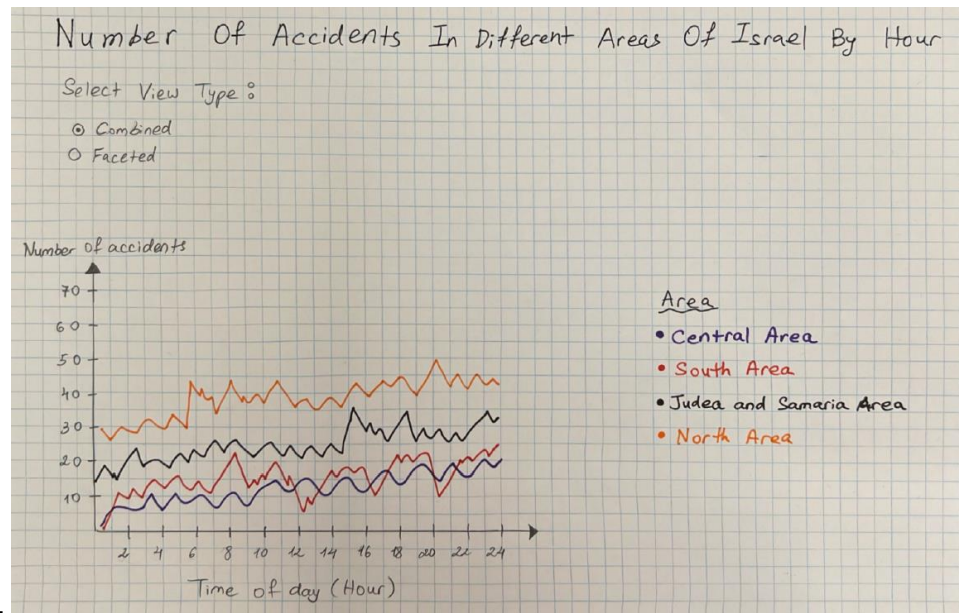 Number Of Accidents In Different Areas Of Israel By Hour
Select View Type :
Combined
Faceted
Number of accidents
70
60
50
40
30
20
10
2 4 6 8 10 12 14 16 18 20 22 24
Time of day (Hour)
Area
Central Area
South Area
Judea and Samaria Area
North Area